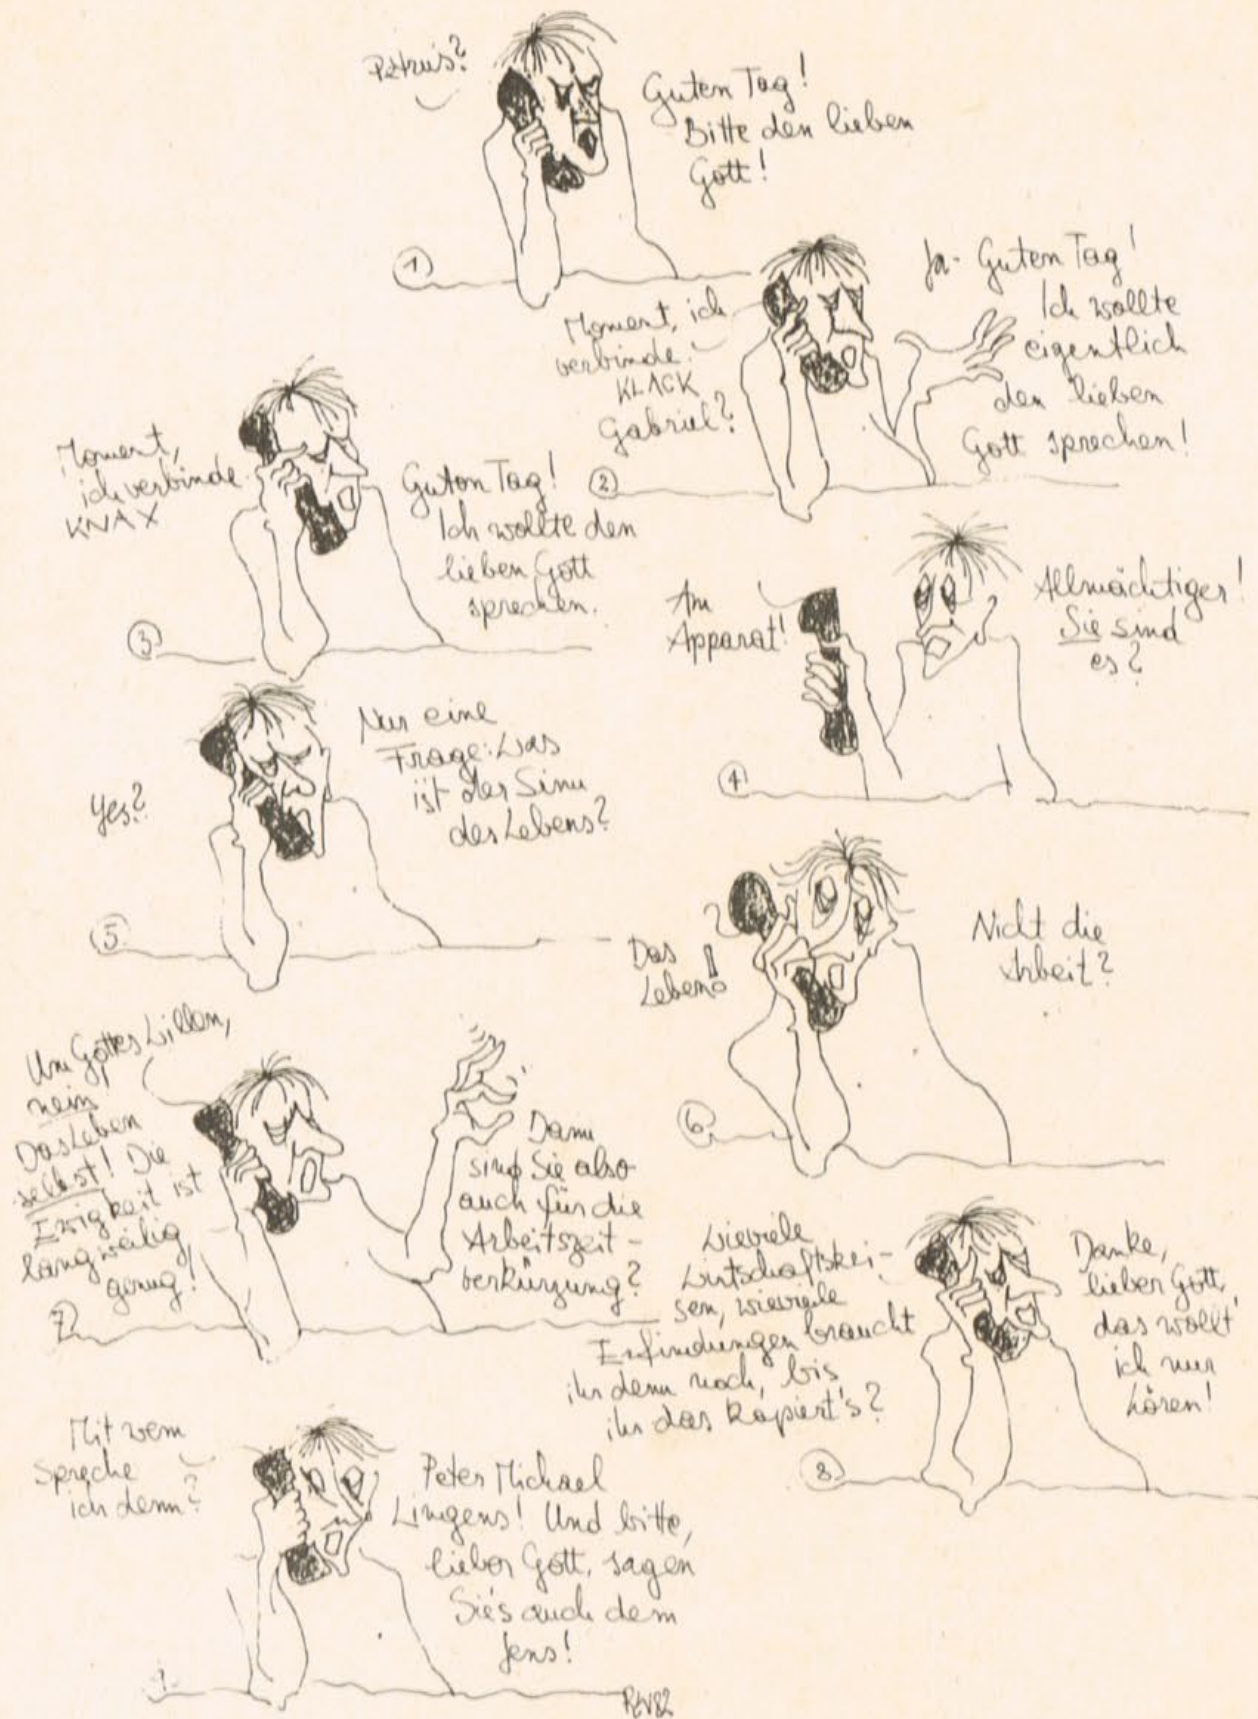 Petrus?
Guten Tag!
Bitte den lieben
Gott!
1
Moment, ich
verbinde.
KLACK
Gabriel?
Ja - Guten Tag!
Ich wollte
eigentlich
den lieben
Gott sprechen!
2
Moment,
ich verbinde
KNAX
Guten Tag!
Ich wollte den
lieben Gott
sprechen.
3
Am
Apparat!
Allmächtiger!
Sie sind
es?
4
Yes?
Nur eine
Frage: Was
ist der Sinn
des Lebens?
5
Das
Leben!
Nicht die
Arbeit?
6
Um Gottes Willen,
nein
Das Leben
selbst! Die
Ewigkeit ist
langweilig
genug!
Dann
sind Sie also
auch für die
Arbeitszeit-
verkürzung?
7
Wieviele
Wirtschaftskri-
sen, wieviele
Erfindungen braucht
ihr denn noch, bis
ihr das kapiert's?
Danke,
lieber Gott,
das wollt'
ich nur
hören!
8
Mit wem
spreche
ich denn?
Peter Michael
Lingens! Und bitte,
lieber Gott, sagen
Sie's auch dem
Jens!
9